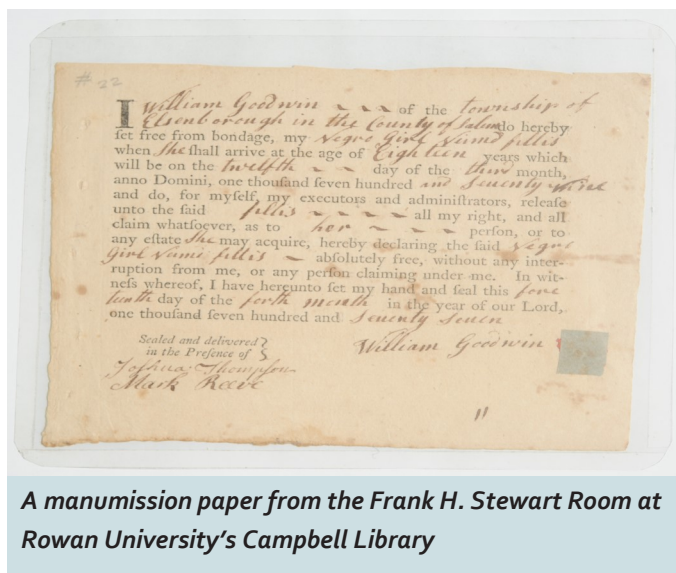 # 22
I William Goodwin ~ ~ ~ of the township of
Elsenborough in the County of Salum do hereby
ſet free from bondage, my Negro Girl Namd fillis
when She ſhall arrive at the age of Eighteen years which
will be on the twelfth ~ ~ day of the third month,
anno Domini, one thouſand ſeven hundred and Seventy nine
and do, for myſelf, my executors and adminiſtrators, releaſe
unto the ſaid fillis ~ ~ ~ ~ all my right, and all
claim whatſoever, as to her ~ ~ ~ perſon, or to
any eſtate She may acquire, hereby declaring the ſaid Negro
Girl Namd fillis ~ abſolutely free, without any inter-
ruption from me, or any perſon claiming under me. In wit-
neſs whereof, I have hereunto ſet my hand and ſeal this fore
teenth day of the forth month in the year of our Lord,
one thouſand ſeven hundred and Seventy Seven
Sealed and delivered
in the Presence of
William Goodwin
Joshua Thompson
Mark Reeve
11
A manumission paper from the Frank H. Stewart Room at
Rowan University's Campbell Library